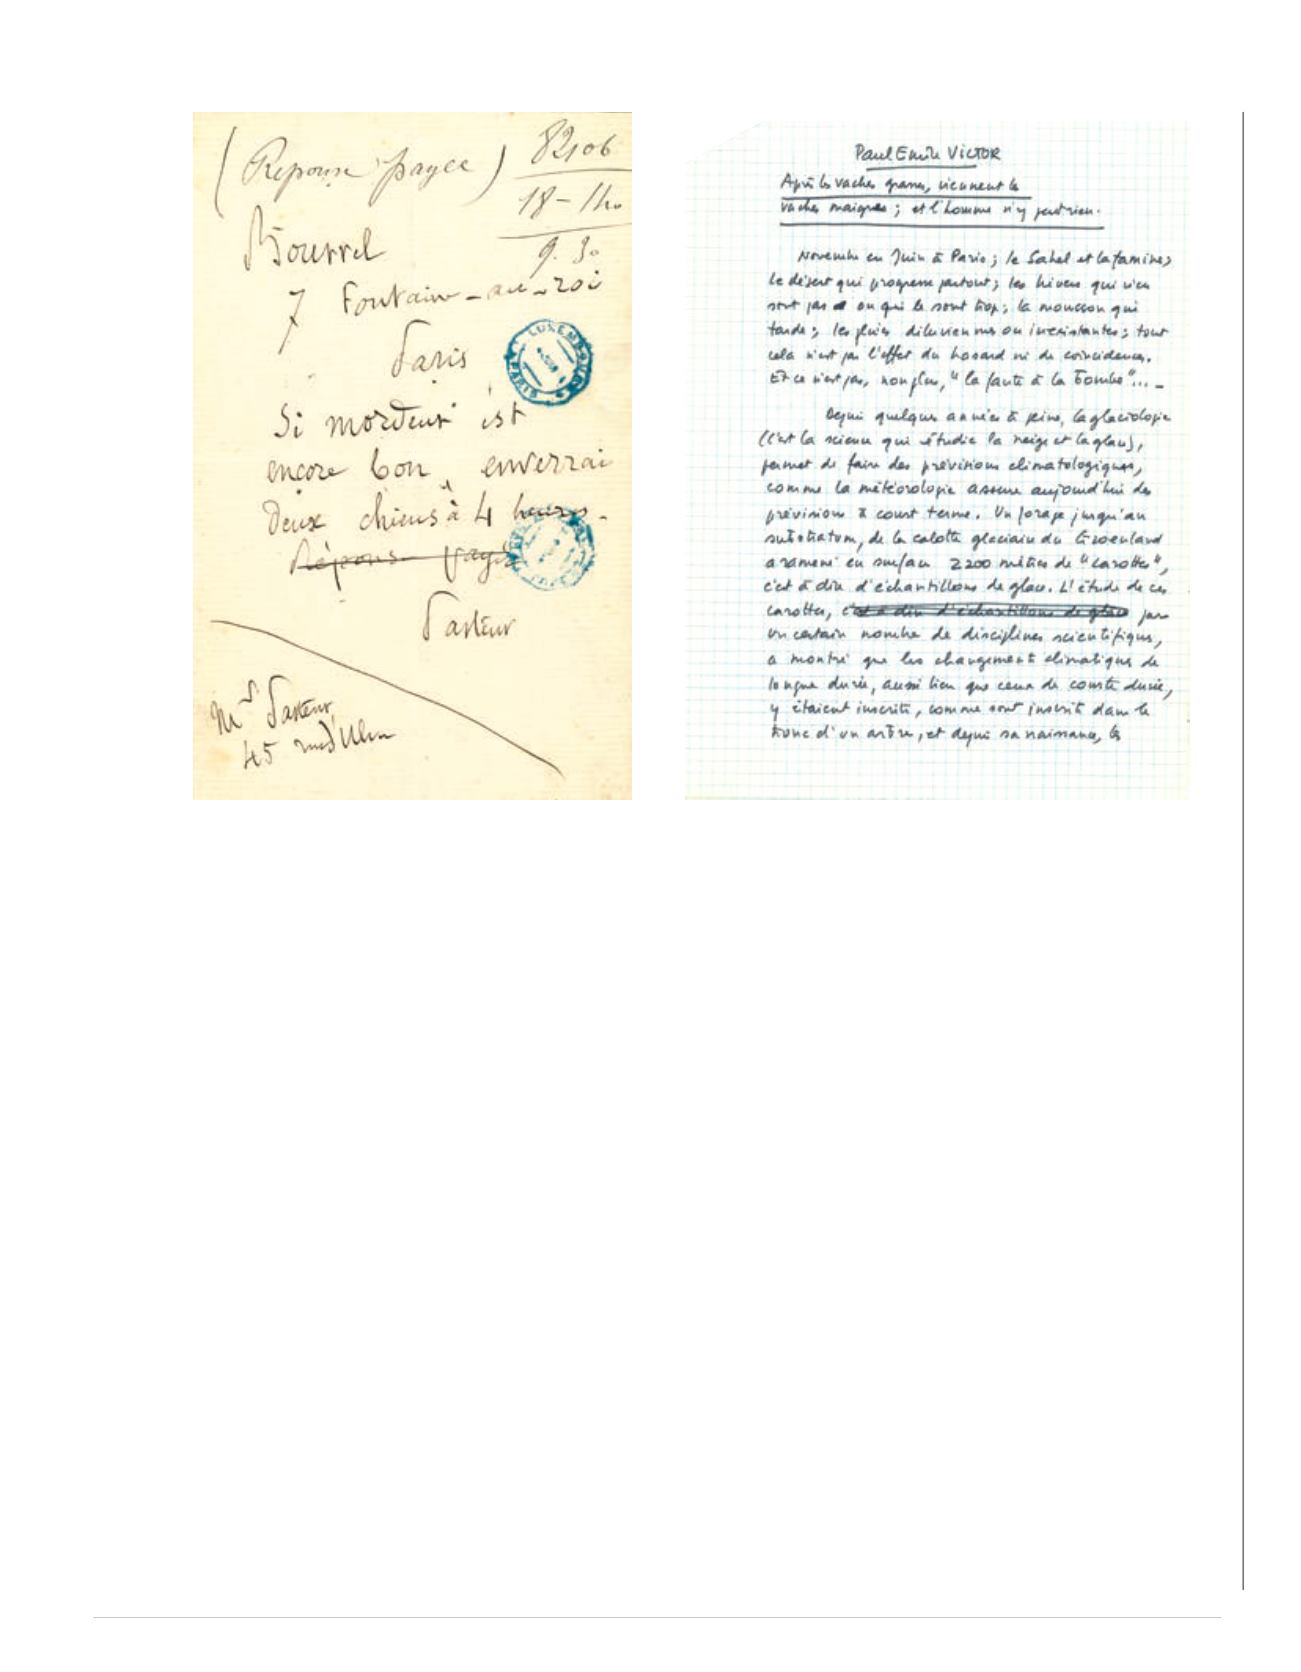 (Réponse payée)
82106
18 - 1 ho
9.30
Bourrel
7 Fontaine-au-roi
Paris
LUXEMBOURG
PARIS
Si mordeur est
encore bon, enverrai
deux chiens à 4 heures.
Réponse payée
Pasteur
Mr Pasteur,
45 rue d'Ulm
Paul Emile VICTOR
Après les vaches grasses, viennent les
vaches maigres ; et l'homme n'y peut rien.
Novembre en Juin à Paris ; le Sahel et la famine ;
le désert qui progresse partout ; les hivers qui n'en
sont pas ou qui le sont trop ; la mousson qui
tarde ; les pluies diluviennes ou inexistantes ; tout
cela n'est pas l'effet du hasard ni de coïncidences.
Et ce n'est pas, non plus, "la faute à la bombe"... -
Depuis quelques années à peine, la glaciologie
(c'est la science qui étudie la neige et la glace),
permet de faire des prévisions climatologiques,
comme la météorologie assure aujourd'hui des
prévisions à court terme. Un forage jusqu'au
substratum, de la calotte glaciaire du Groenland
a ramené en surface 2200 mètres de "carottes",
c'est à dire d'échantillons de glace. L'étude de ces
carottes, c'est à dire d'échantillons de glace par
un certain nombre de disciplines scientifiques,
a montré que les changements climatiques de
longue durée, aussi bien que ceux de courte durée,
y étaient inscrits, comme sont inscrits dans le
tronc d'un arbre, et depuis sa naissance, les